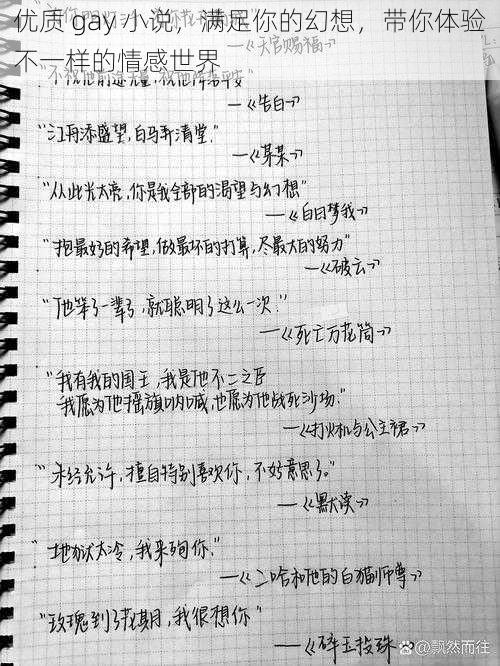 优质 gay 小说，满足你的幻想，带你体验
不一样的情感世界
—《天官赐福》
—《告白》
"江再添盛望，白马弄清堂."
—《某某》
"从此光大亮，你是我全部的渴望与幻想"
—《白日梦我》
"抱最好的希望，做最坏的打算，尽最大的努力"
—《破云》
"他笨了一辈子，就聪明了这么一次."
—《死亡万花筒》
"我有我的国王，我是他不二之臣
我愿为他摇旗呐喊，也愿为他战死沙场."
—《打火机与公主裙》
"未经允许，擅自特别喜欢你，不好意思了."
—《默读》
"地狱太冷，我来殉你."
—《二哈和他的白猫师尊》
"玫瑰到了花期，我很想你"
—《碎玉投珠》
@飘然而往